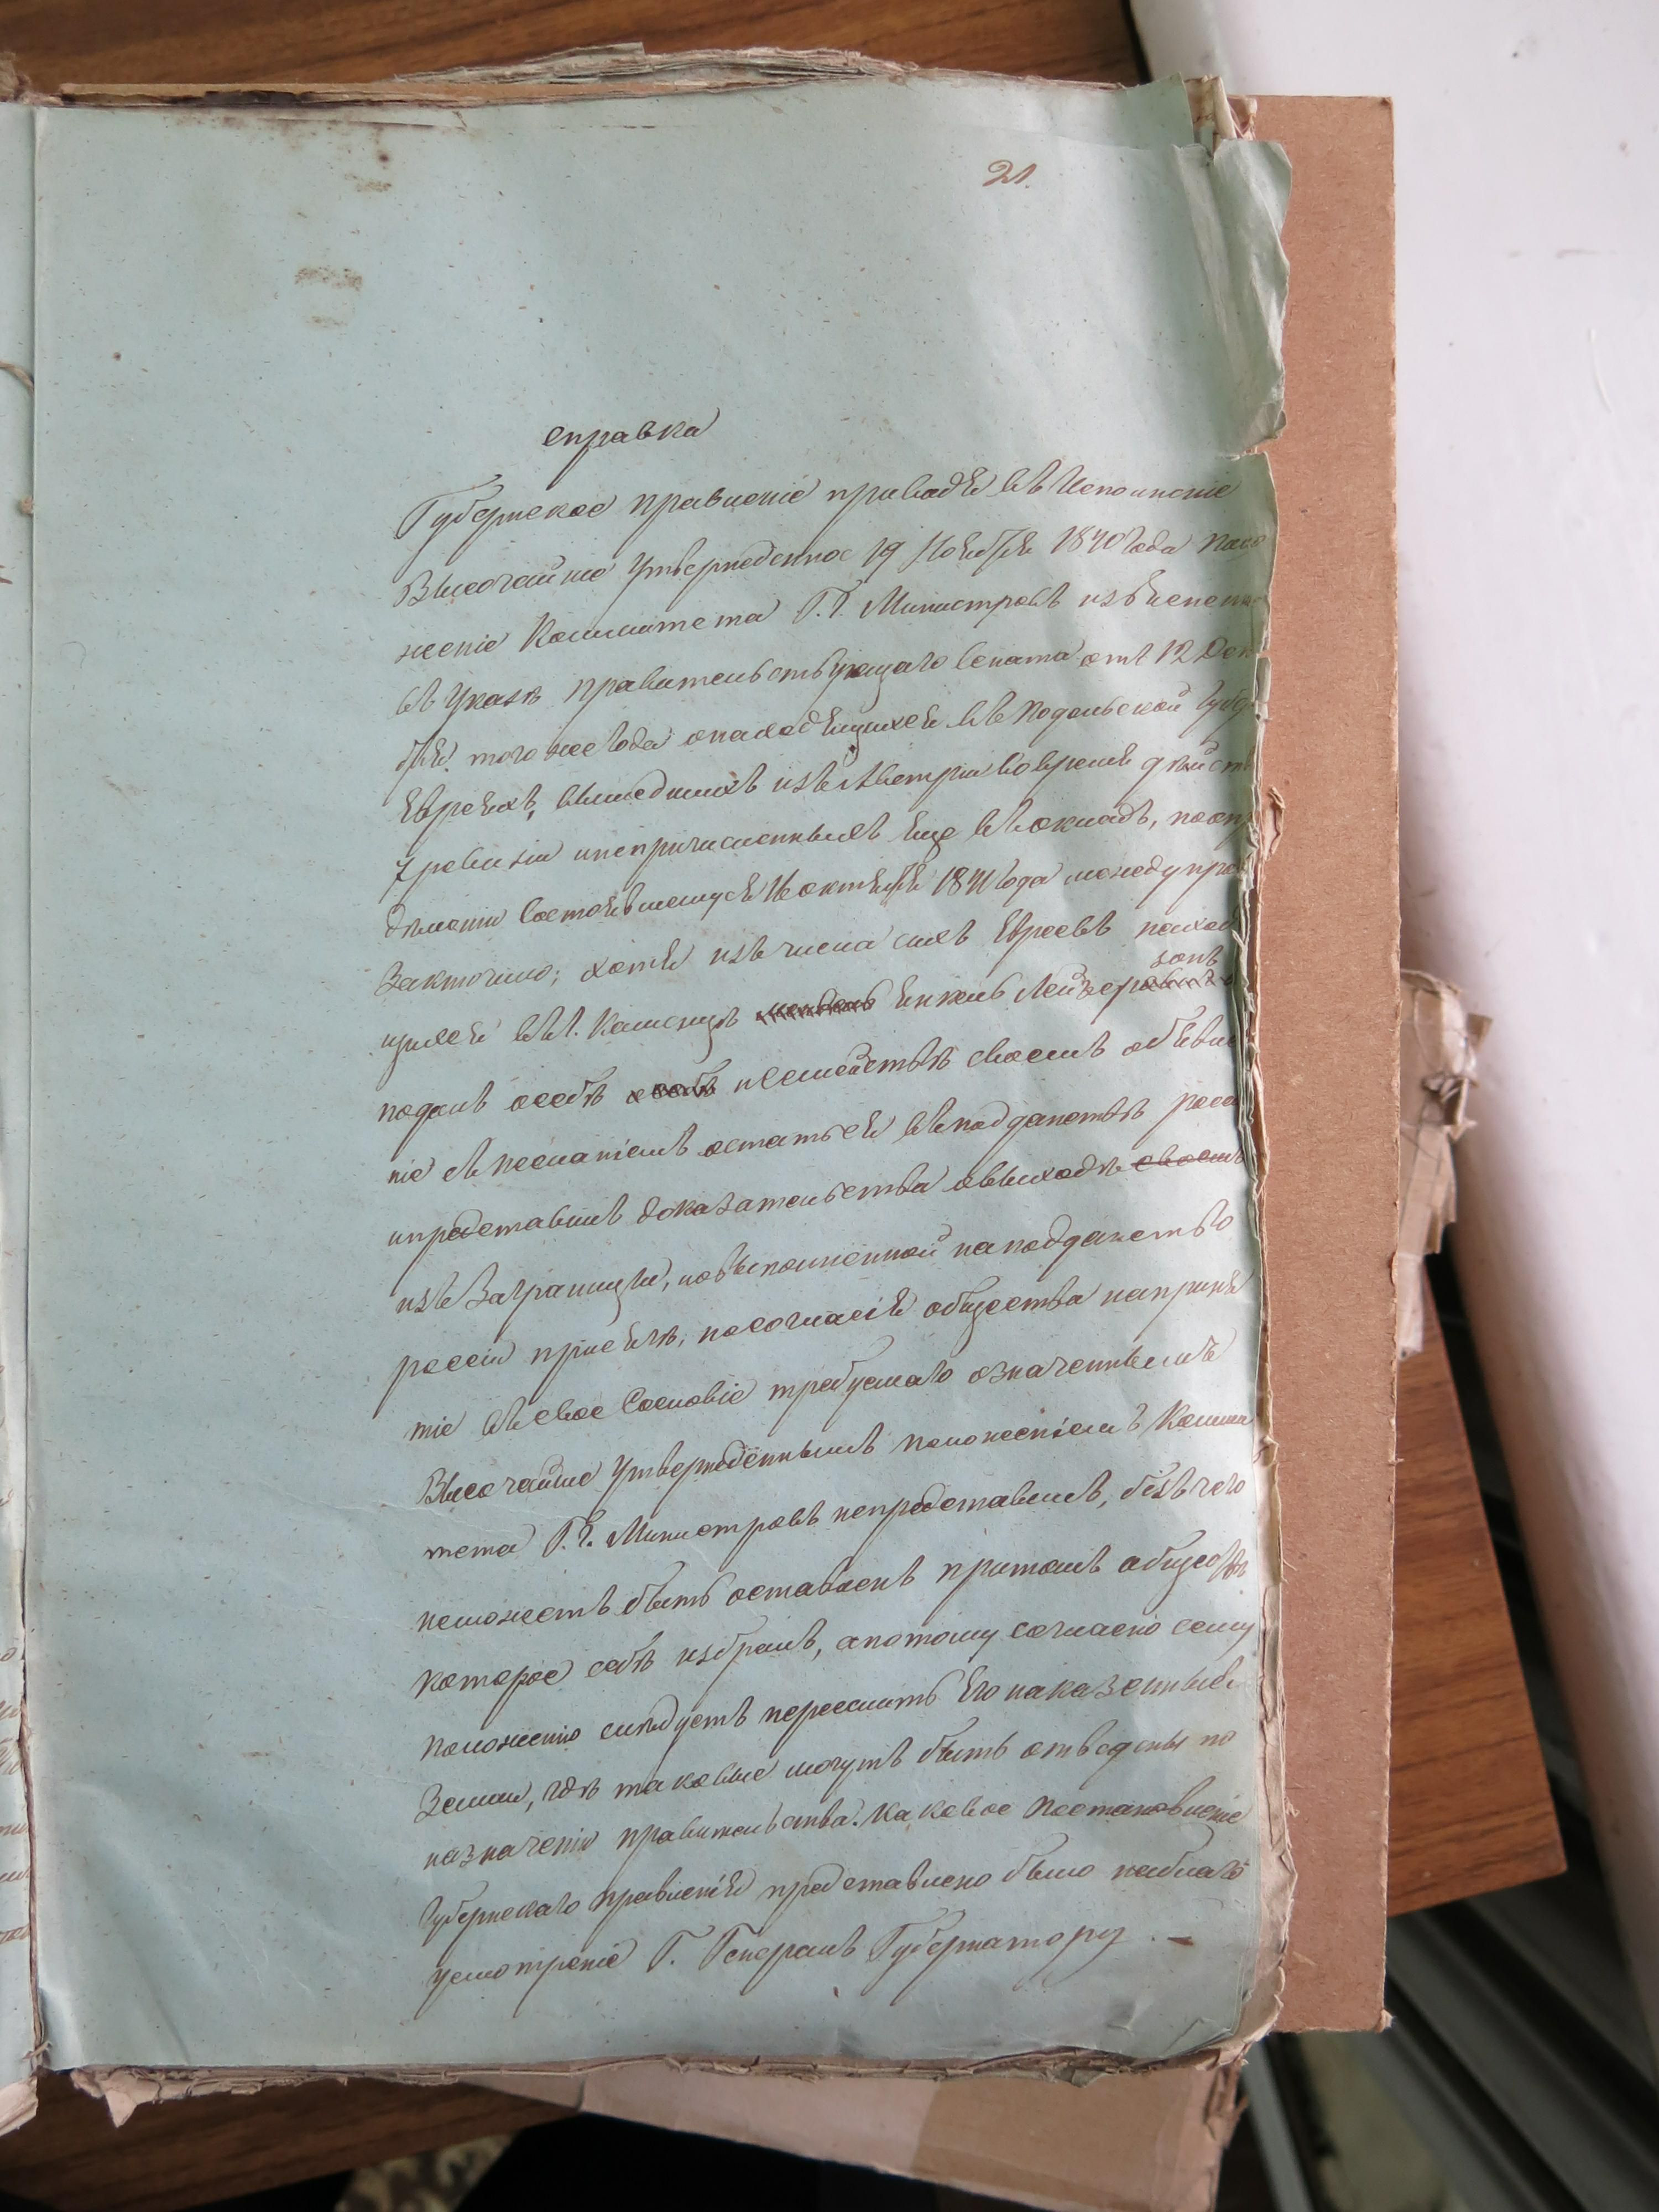 21.
справка
Губернское правленіе приводя въ исполненіе
Высочайше утвержденное 19 Ноября 1840 года поло
женіе Комитета Г.Г. Министровъ
въ указѣ правительствующаго Сената отъ 12 Дек
бря того же года онаходящихся въ Подольской губер
Евреяхъ, вышедшихъ изъ Австріи во время дѣйств
7 ревизіи инепричисленныхъ еще въ окладъ, поопр
дѣленію состоявшемуся 16 октября 1841 года между про
заключило; хотя изъ числа сихъ Евреевъ наход
зонъ
щихся въ г. Каменцѣ Янкель Лейзеровичъ
подалъ особѣ исемействѣ своемъ объявле
ніе съ желаніемъ остаться въ подданствѣ росс
ипредставилъ доказательства овыходѣ своемъ
изъ заграницы, но выполненной на подданство
россіи присягѣ, но согласія общества на приня
тіе въ свое Сословіе требуемаго означеннымъ
Высочайше утвержденнымъ положеніемъ Коми
тета Г.Г. Министровъ непредставилъ, безъ чего
неможетъ быть оставленъ притомъ обществѣ
которое себѣ избралъ, апотому согласно сему
положенію слѣдуетъ переселить его на казенныя
Земли, гдѣ таковые могутъ быть отведены по
назначенію правительства. каковое постановленіе
Губернскаго правленія представлено было на благо
усмотреніе Г. Генералъ Губернатору. —